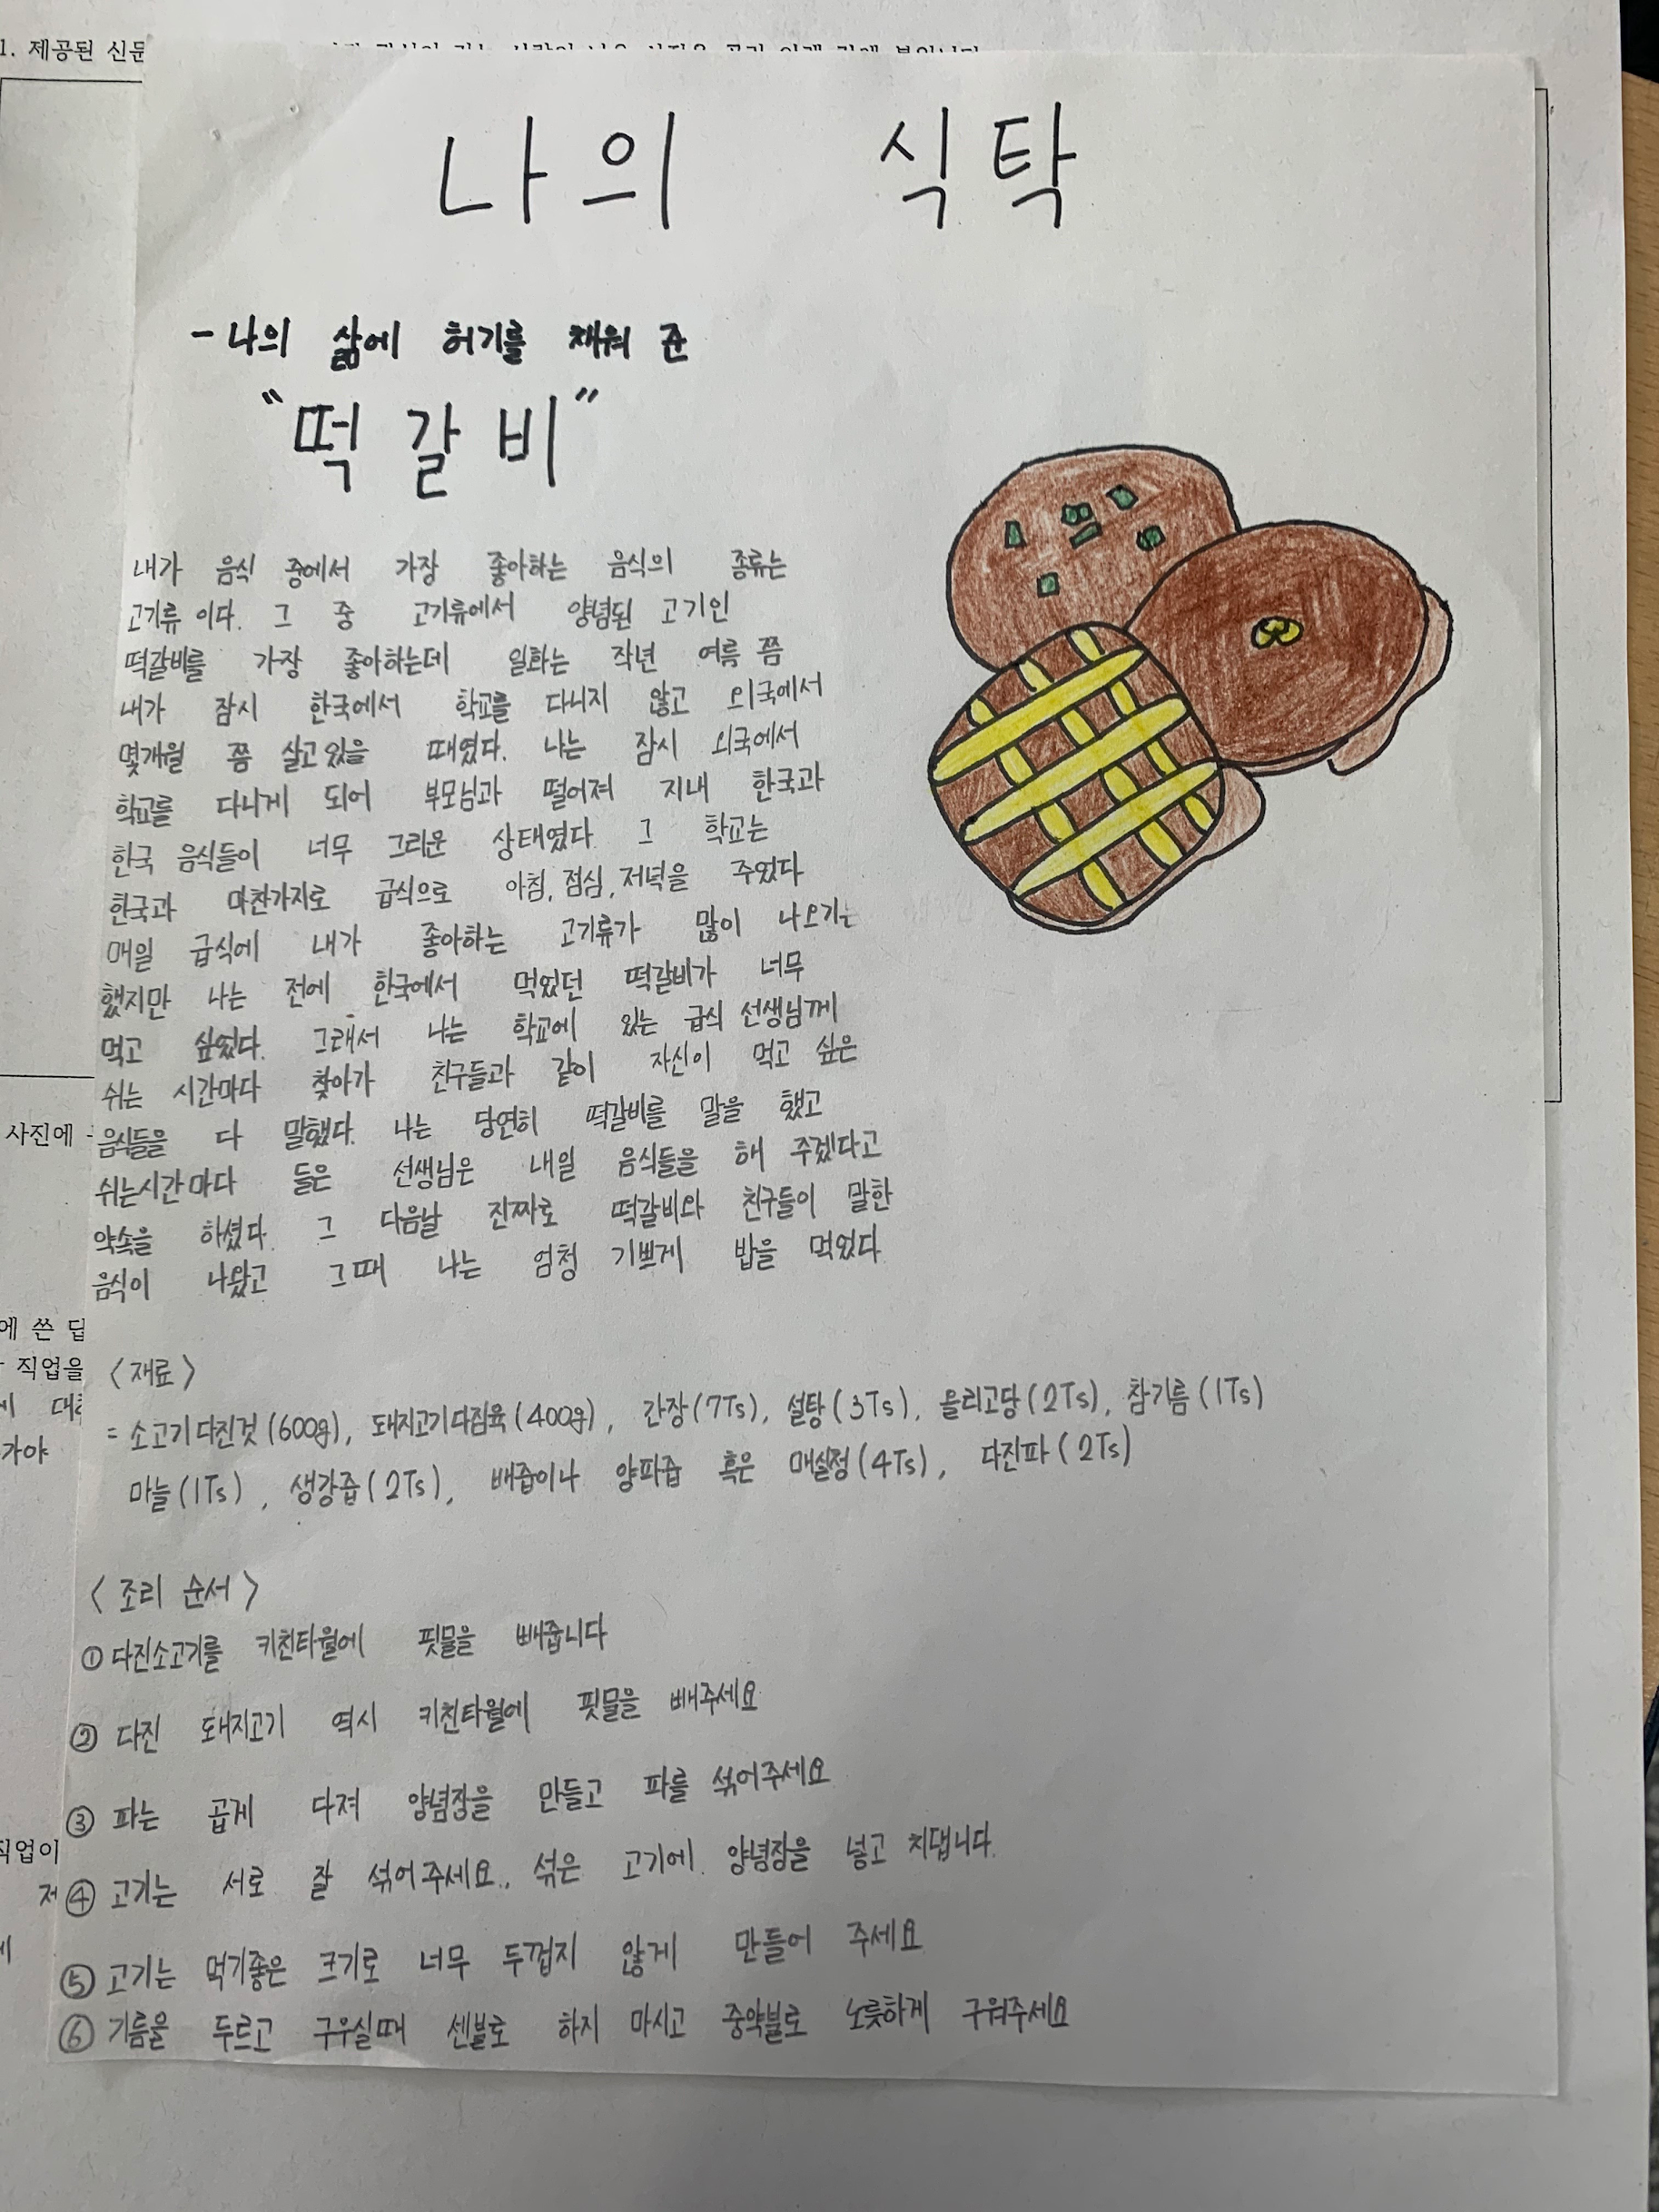 1. 제공된 신문
나의 식탁
- 나의 삶에 허기를 채워 준
"떡갈비"
내가 음식 중에서 가장 좋아하는 음식의 종류는
고기류 이다. 그 중 고기류에서 양념된 고기인
떡갈비를 가장 좋아하는데 일화는 작년 여름 쯤
내가 잠시 한국에서 학교를 다니지 않고 외국에서
몇개월 쯤 살고있을 때였다. 나는 잠시 외국에서
학교를 다니게 되어 부모님과 떨어져 지내 한국과
한국 음식들이 너무 그리운 상태였다. 그 학교는
한국과 마찬가지로 급식으로 아침, 점심, 저녁을 주었다
매일 급식에 내가 좋아하는 고기류가 많이 나오기는
했지만 나는 전에 한국에서 먹었던 떡갈비가 너무
먹고 싶었다. 그래서 나는 학교에 있는 급식 선생님께
쉬는 시간마다 찾아가 친구들과 같이 자신이 먹고 싶은
사진에
음식들을 다 말했다. 나는 당연히 떡갈비를 말을 했고
쉬는시간마다 들은 선생님은 내일 음식들을 해 주겠다고
약속을 하셨다. 그 다음날 진짜로 떡갈비와 친구들이 말한
음식이 나왔고 그때 나는 엄청 기쁘게 밥을 먹었다
에 쓴 답
직업을
가야
<재료>
= 소고기다진것(600g), 돼지고기다짐육(400g), 간장(7Ts), 설탕(3Ts), 올리고당(2Ts), 참기름(1Ts)
마늘(1Ts), 생강즙(2Ts), 배즙이나 양파즙 혹은 매실청(4Ts), 다진파(2Ts)
<조리 순서>
① 다진소고기를 키친타월에 핏물을 빼줍니다
② 다진 돼지고기 역시 키친타월에 핏물을 빼주세요
③ 파는 곱게 다져 양념장을 만들고 파를 섞어주세요
직업이
④ 고기는 서로 잘 섞어주세요., 섞은 고기에 양념장을 넣고 치댑니다.
⑤ 고기는 먹기좋은 크기로 너무 두껍지 않게 만들어 주세요
⑥ 기름을 두르고 구우실때 센불로 하지 마시고 중약불로 노릇하게 구워주세요